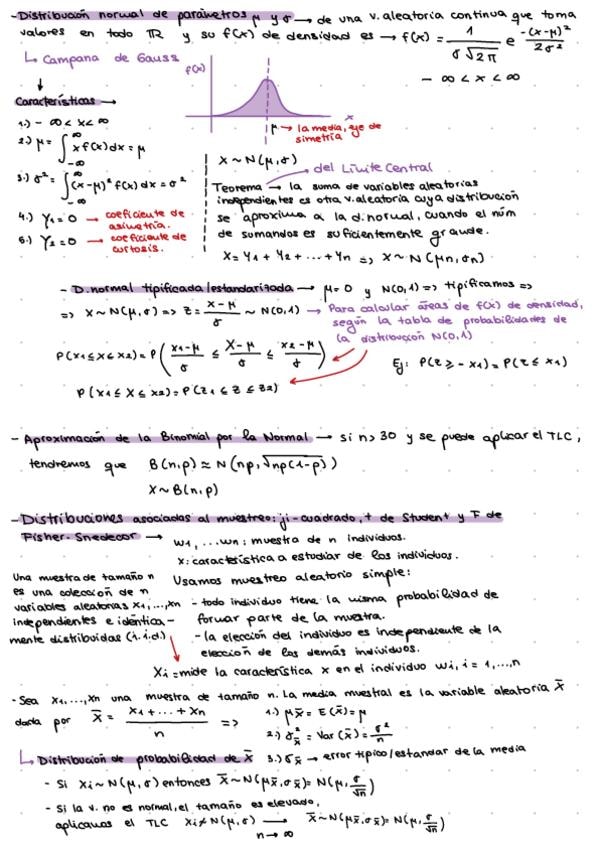 -Distribución normal de parámetros μ y σ → de una v.aleatoria continua que toma
valores en todo ℝ y su f(x) de densidad es → f(x) = 1/(σ√2π) e^(-(x-μ)²/2σ²)
↳ Campana de Gauss
- ∞ < x < ∞
f(x)
x
μ → la media, eje de
simetría
Características →
1.) - ∞ < x < ∞
2.) μ = ∫_{-∞}^{∞} x f(x) dx = μ
3.) σ² = ∫_{-∞}^{∞} (x-μ)² f(x) dx = σ²
4.) γ1 = 0 → coeficiente de
asimetría.
5.) γ2 = 0 → coeficiente de
curtosis.
X ~ N(μ,σ)
del Límite Central
Teorema → la suma de variables aleatorias
independientes es otra v.aleatoria cuya distribución
se aproxima a la d.normal, cuando el núm
de sumandos es suficientemente grande.
X = Y1 + Y2 + ... + Yn => X ~ N(μn, σn)
- D.normal tipificada/estandarizada → μ=0 y N(0,1) => tipificamos =>
=> X ~ N(μ,σ) => Z = (X-μ)/σ ~ N(0,1) → Para calcular áreas de f(x) de densidad,
según la tabla de probabilidades de
la distribución N(0,1)
P(x1 ≤ X ≤ x2) = P((x1-μ)/σ ≤ (X-μ)/σ ≤ (x2-μ)/σ)
Ej: P(Z ≥ -x1) = P(Z ≤ x1)
P(x1 ≤ X ≤ x2) = P(Z1 ≤ Z ≤ Z2)
- Aproximación de la Binomial por la Normal → si n > 30 y se puede aplicar el TLC,
tendremos que B(n,p) ≈ N(np, √np(1-p))
X ~ B(n,p)
- Distribuciones asociadas al muestreo: ji-cuadrado, t de Student y F de
Fisher-Snedecor → w1, ... wn: muestra de n individuos.
x: característica a estudiar de los individuos.
Usamos muestreo aleatorio simple:
- todo individuo tiene la misma probabilidad de
formar parte de la muestra.
- la elección del individuo es independiente de la
elección de los demás individuos.
Una muestra de tamaño n
es una colección de n
variables aleatorias x1,...,xn
independientes e idéntica-
mente distribuidas (i.i.d.)
Xi = mide la característica x en el individuo wi, i = 1,...,n
- Sea x1,...,xn una muestra de tamaño n. La media muestral es la variable aleatoria X̄
dada por X̄ = (x1 + ... + xn)/n =>
1.) μx̄ = E(x̄) = μ
2.) σ²x̄ = Var(x̄) = σ²/n
3.) σx̄ → error típico/estandar de la media
↳ Distribución de probabilidad de X̄
- Si Xi ~ N(μ,σ) entonces X̄ ~ N(μx̄, σx̄) = N(μ, σ/√n)
- Si la v. no es normal, el tamaño es elevado,
aplicamos el TLC Xi ≁ N(μ,σ) → X̄ ~ N(μx̄, σx̄) = N(μ, σ/√n)
n → ∞